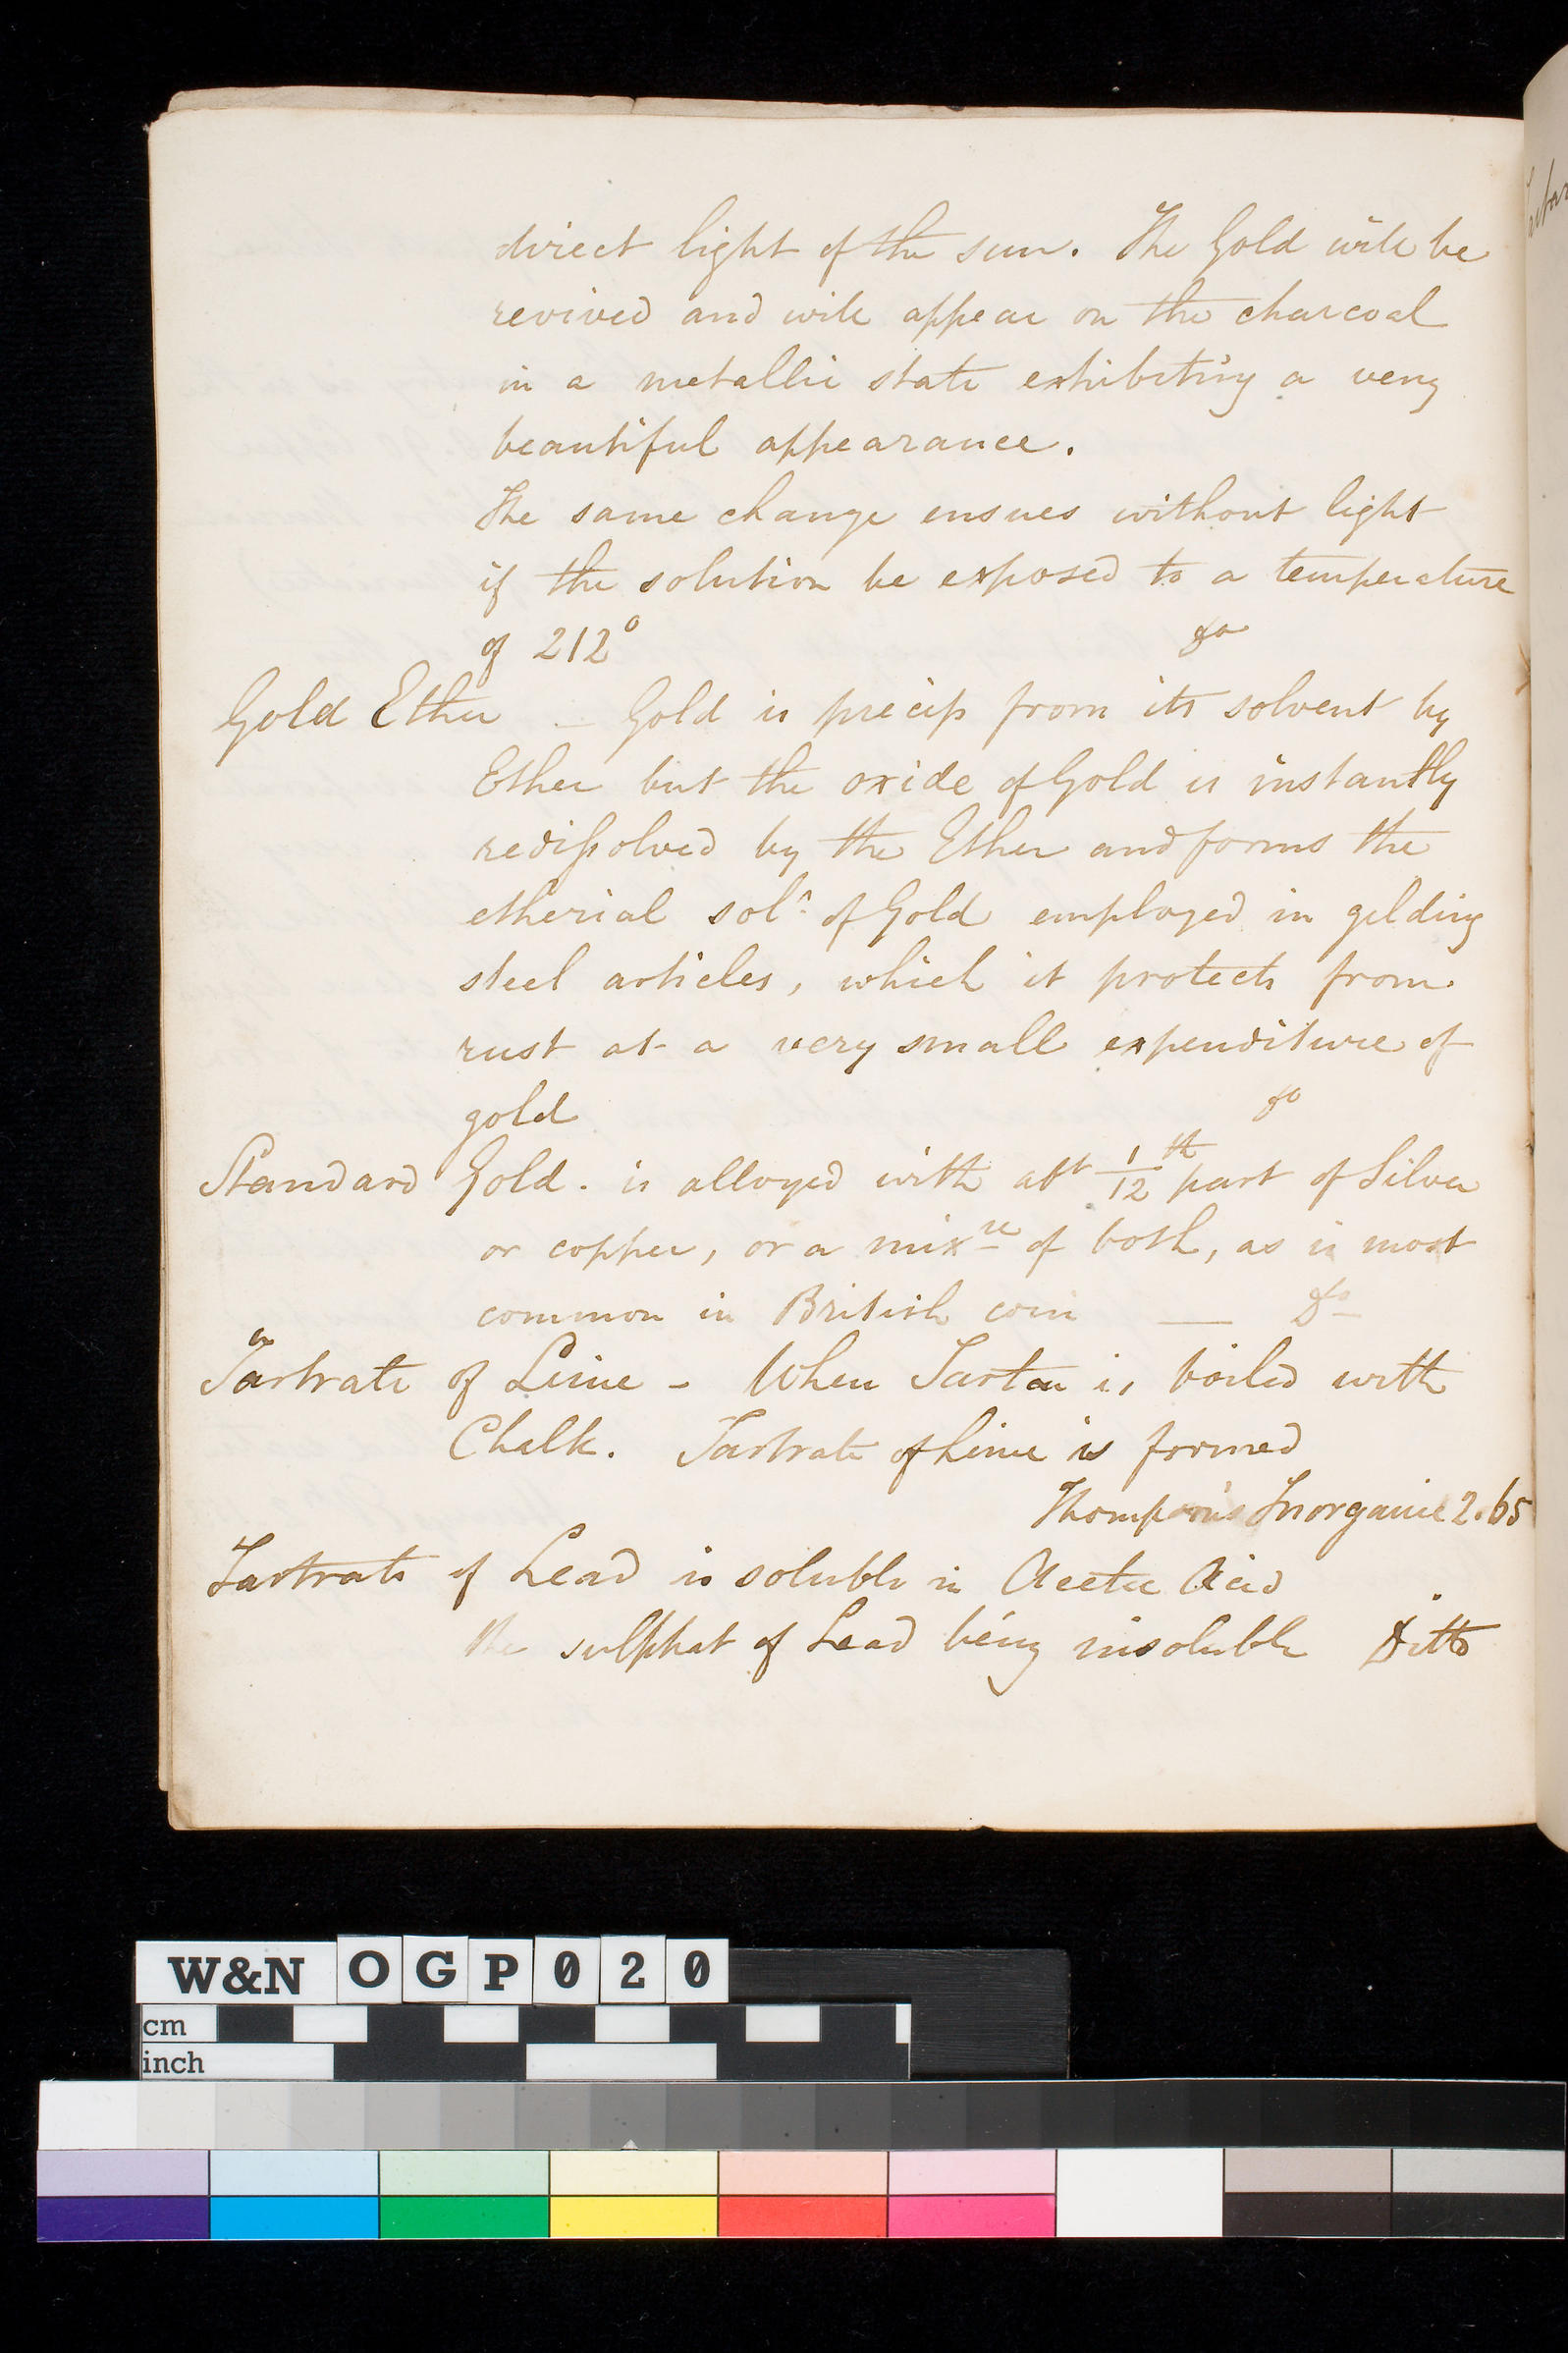 direct light of the sun. The Gold will be
revived and will appear on the charcoal
in a metallic state exhibiting a very
beautiful appearance.
The same change ensues without light
if the solution be exposed to a temperature
of 212° do
Gold Ether – Gold is precip from its solvent by
Ether but the oxide of Gold is instantly
redissolved by the Ether and forms the
etherial solⁿ. of Gold employed in gilding
steel articles, which it protects from
rust at a very small expenditure of
gold do
Standard Gold. is alloyed with abt 1/12th part of Silver
or copper, or a mixre of both, as is most
common in British coin — Do
Tartrate of Lime – When Tartar is boiled with
Chalk. Tartrate of Lime is formed
Thompson's Inorganic 2.65
Tartrate of Lead is soluble in Acetic Acid
the sulphat of Lead being insoluble Ditto
W&N OGP020
cm
inch